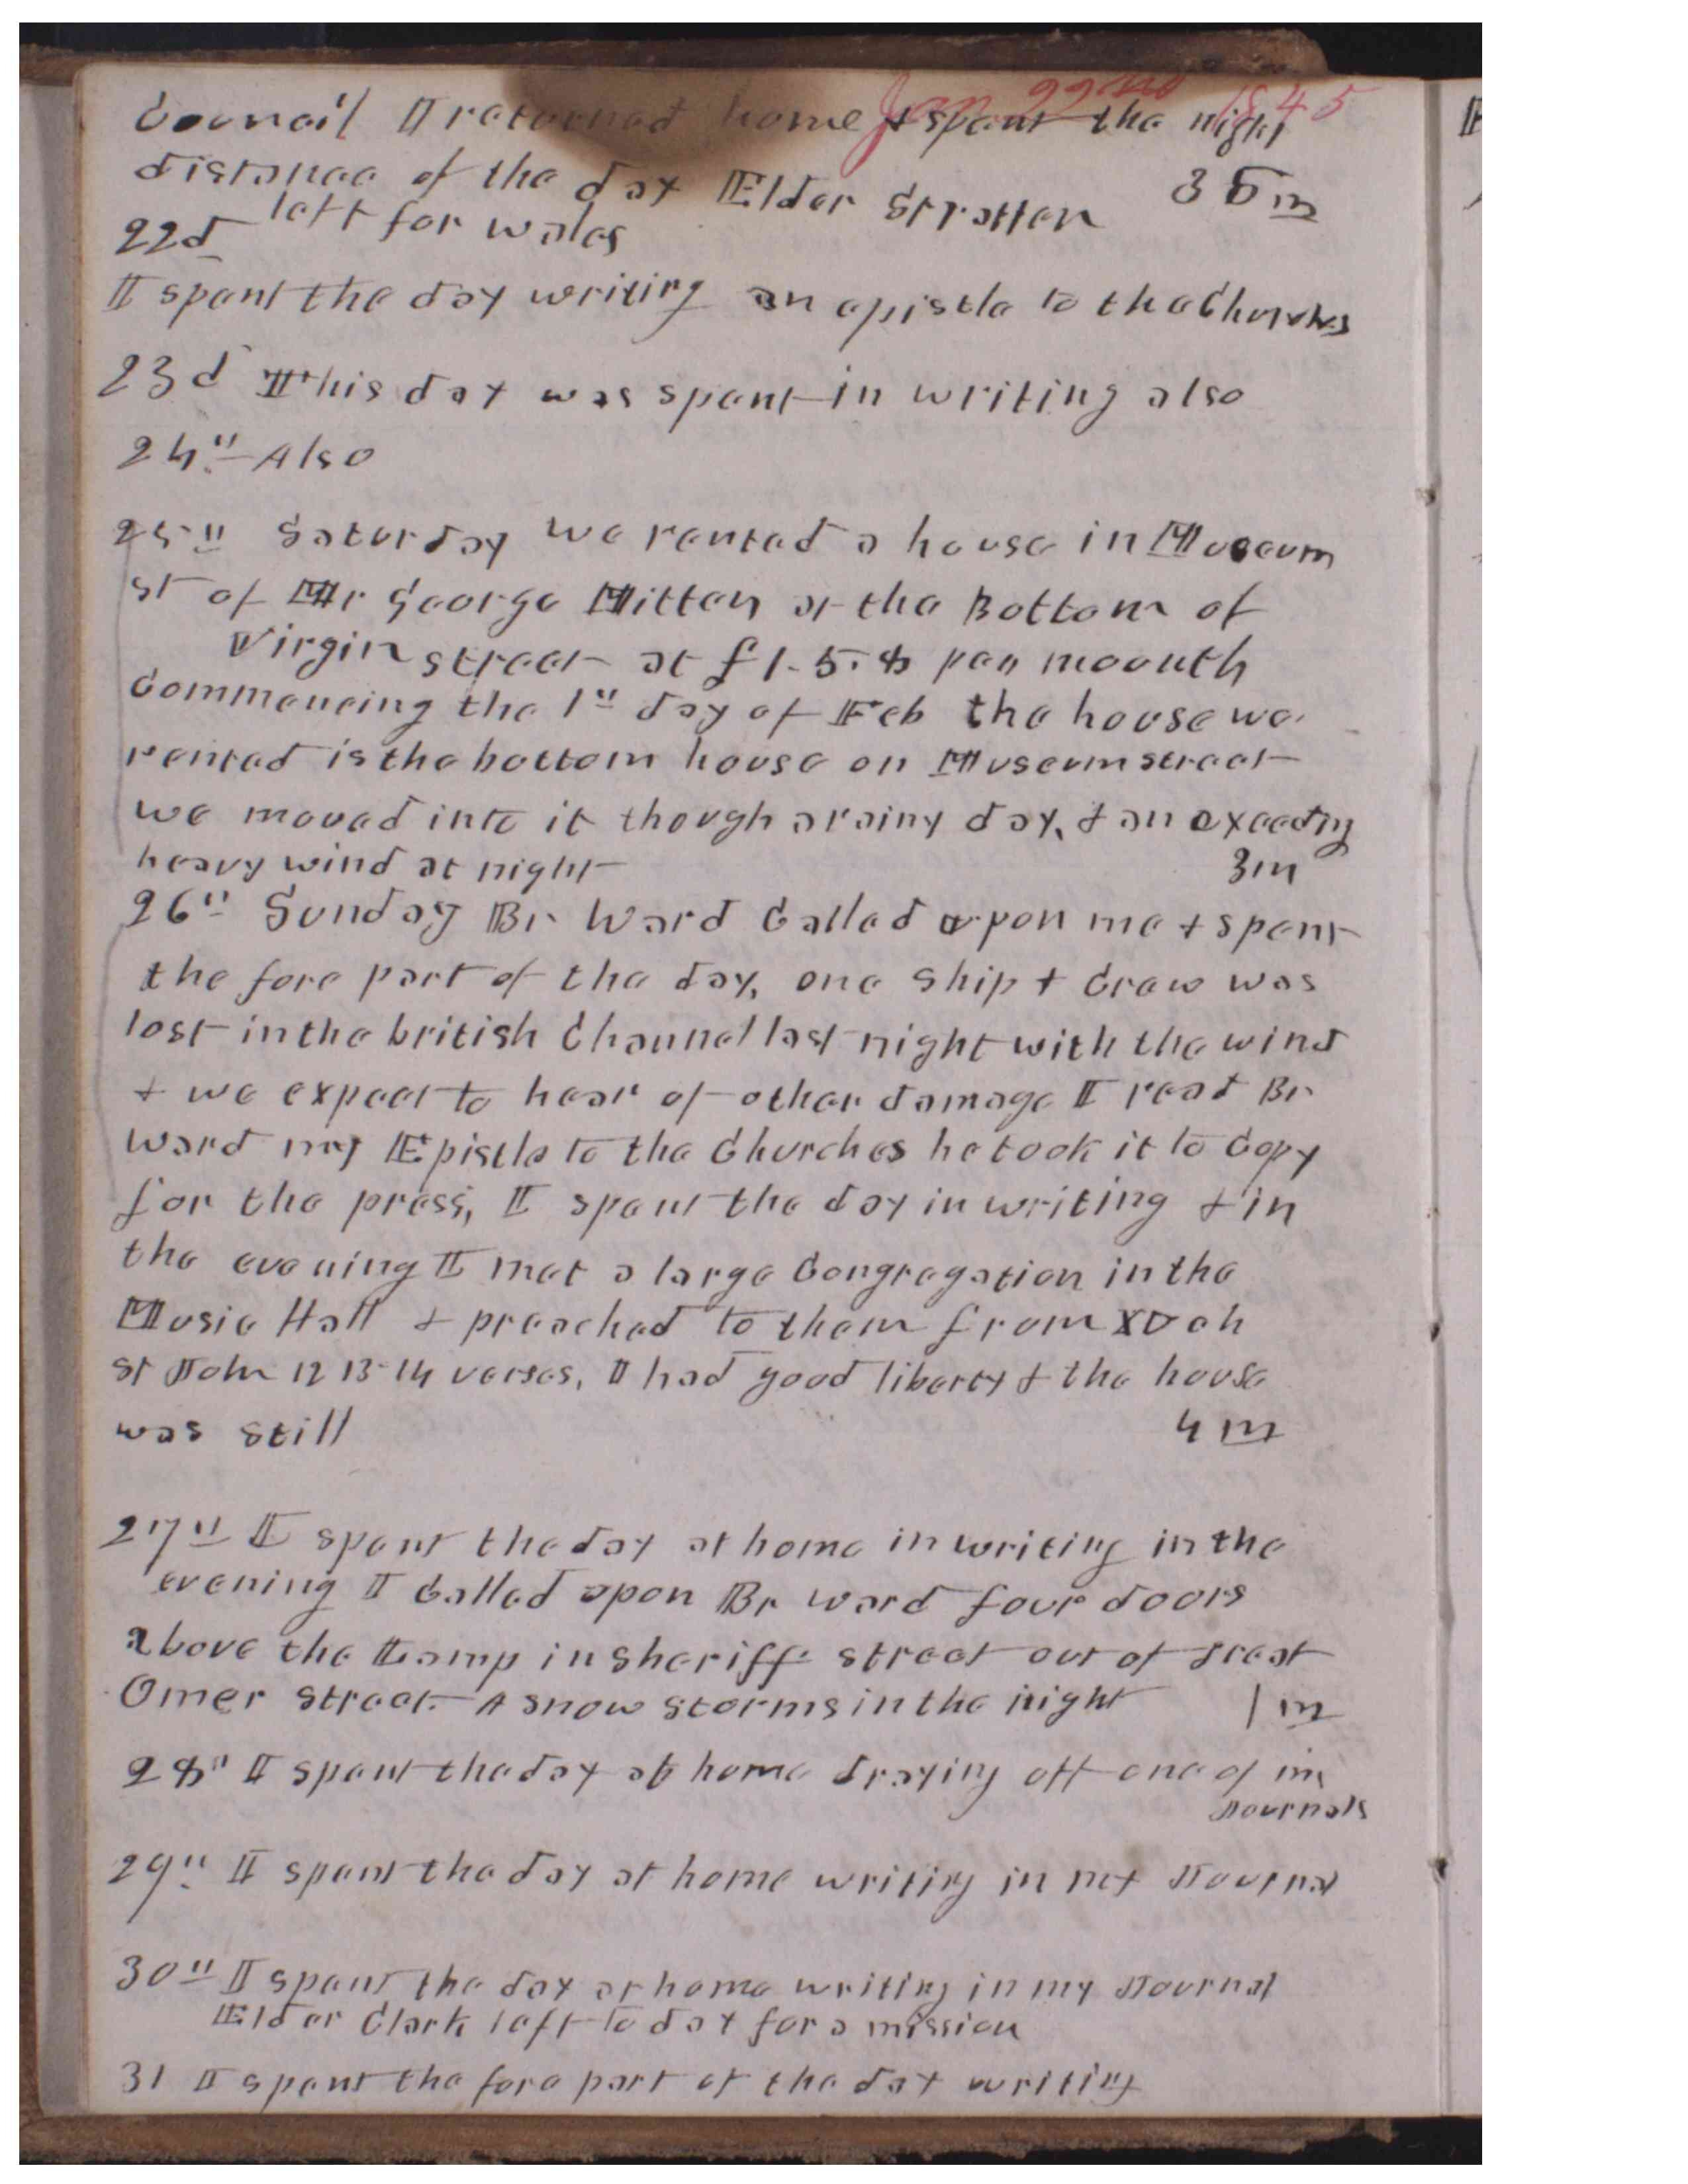 Jan 22nd 1845
Council I returned home & spent the night
distance of the day Elder Stratton 35 m
left for wales
22d
I spent the day writing an epistle to the Churches
23d This day was spent in writing also
24" Also
25" Saturday we rented a house in Museum
st of Mr George Mitten at the Bottom of
Virgin street at £1.5.8 per moonth
Commencing the 1st day of Feb the house we
rented is the bottom house on Museum street
we moved into it though a rainy day, & an exceeding
heavy wind at night 3 m
26" Sunday Br Ward Called upon me & spent
the fore part of the day, one ship & Crew was
lost in the british Channel last night with the wind
& we expect to hear of other damage I read Br
Ward my Epistle to the Churches he took it to Copy
for the press, I spent the day in writing & in
the evening I met a large Congregation in the
Music Hall & preached to them from XV ch
St John 12 13-14 verses, I had good liberty & the house
was still 4 m
27" I spent the day at home in writing in the
evening I Called upon Br Ward four doors
above the Lamp in Sheriff street out of great
Omer street. A snow storms in the night 1 m
28" I spent the day at home draying off one of my
Journals
29" I spent the day at home writing in my Journal
30" I spent the day at home writing in my Journal
Elder Clark left to day for a mission
31 I spent the fore part of the day writing